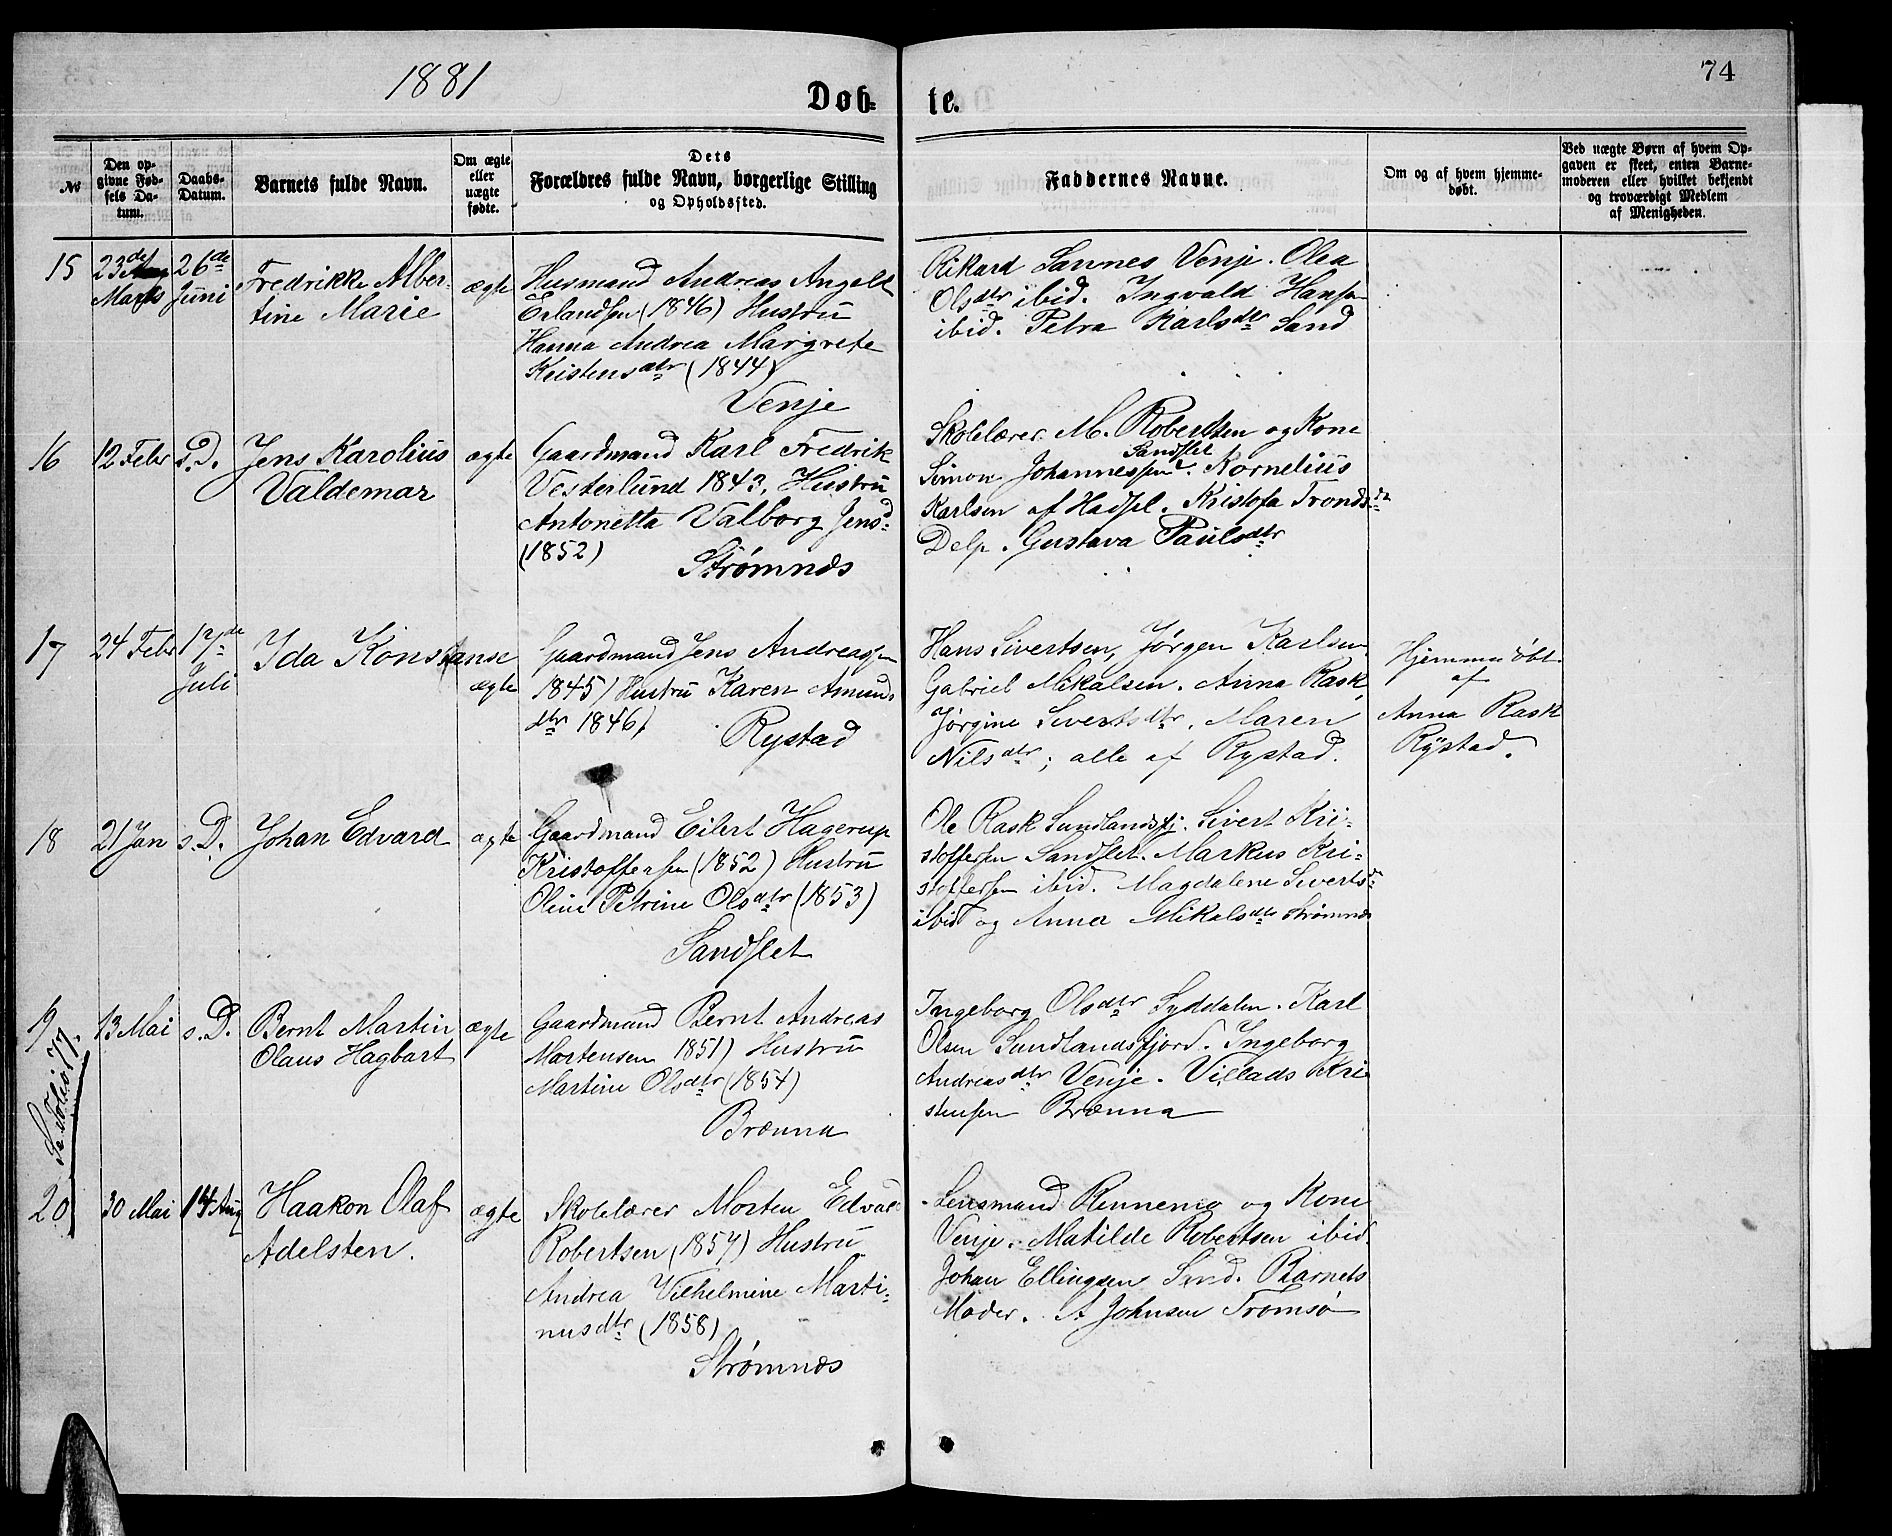 1881
Døb- te.
74
№
Den op-
givne Fød-
sels Da-
tum.
Daabs-
Datum.
Barnets fulde Navn.
Om ægte
eller
uægte
fødte.
Dets
Forældres fulde Navn, borgerlige Stilling
og Opholdssted.
Faddernes Navne.
Om og af hvem hjemme-
døbt.
Ved uægte Børn af hvem Op-
gaven er skeet, enten Barne-
moderen eller hvilket bekjendt
og troværdigt Medlem
af Menigheden.
15
23de
Marts
26de
Juni
Fredrikke Alber-
tine Marie
ægte
Husmand Andreas Angell
Erlandsen (1846) Hustru
Hanna Andrea Margrete
Kristensdtr (1844)
Venje
Rikard Sannes Venje. Olea
Olsdtr ibid. Ingvald Hansen
ibid. Petra Karlsdtr Sand
16
12 Febr
s.D.
Jens Karolius
Valdemar
ægte
Gaardmand Karl Fredrik
Vesterlund 1843, Hustru
Antonetta Valborg Jensd
(1852)
Strømnæs
Skolelærer M. Robertsen og Kone
Sandslet
Simon Johannessen. Kornelius
Karlsen af Hadsel. Kristofa Tronds
Delp. Gustava Paulsdtr
17
24 Febr
17de
Juli
Ida Konstanse
ægte
Gaardmand Jens Andreassen
1845) Hustru Karen Amunds
dtr 1846)
Rystad
Hans Sivertsen, Jørgen Karlsen
Gabriel Mikalsen. Anna Rask,
Jørgine Sivertsdtr, Maren
Nilsdtr; alle af Rystad.
Hjemmedøbt
af
Anna Rask
Rystad.
18
21 Jan
s.D.
Johan Edvard
ægte
Gaardmand Eilert Hagerup
Kristoffersen (1852) Hustru
Oline Petrine Olsdtr (1853)
Sandslet
Ole Rask Sundlandsfj. Sivert Kri-
stoffersen Sandslet. Markus Kri-
stoffersen ibid. Magdalene Sivertsd
ibid og Anna Mikalsdtr Strømnæs
19
Se Folio 77.
13 Mai
s.D.
Bernt Martin
Olaus Hagbart
ægte
Gaardmand Bernt Andreas
Mortensen 1851) Hustru
Martine Olsdtr (1854)
Brænna
Ingeborg Olsdtr Syddalen. Karl
Olsen Sundlandsfjord. Ingeborg
Andreasdtr Venje. Villads Kri
stensen Brænna
20
30 Mai
14 Aug
Haakon Olaf
Adelsten.
ægte
Skolelærer Morten Edvard
Robertsen (1857) Hustru
Andrea Vilhelmine Marti-
nusdtr (1858)
Strømnæs
Lensmand Rennemo og Kone
Venje. Matilde Robertsen ibid.
Johan Ellingsen Sund. Barnets
Moder. A Johnsen Tromsø